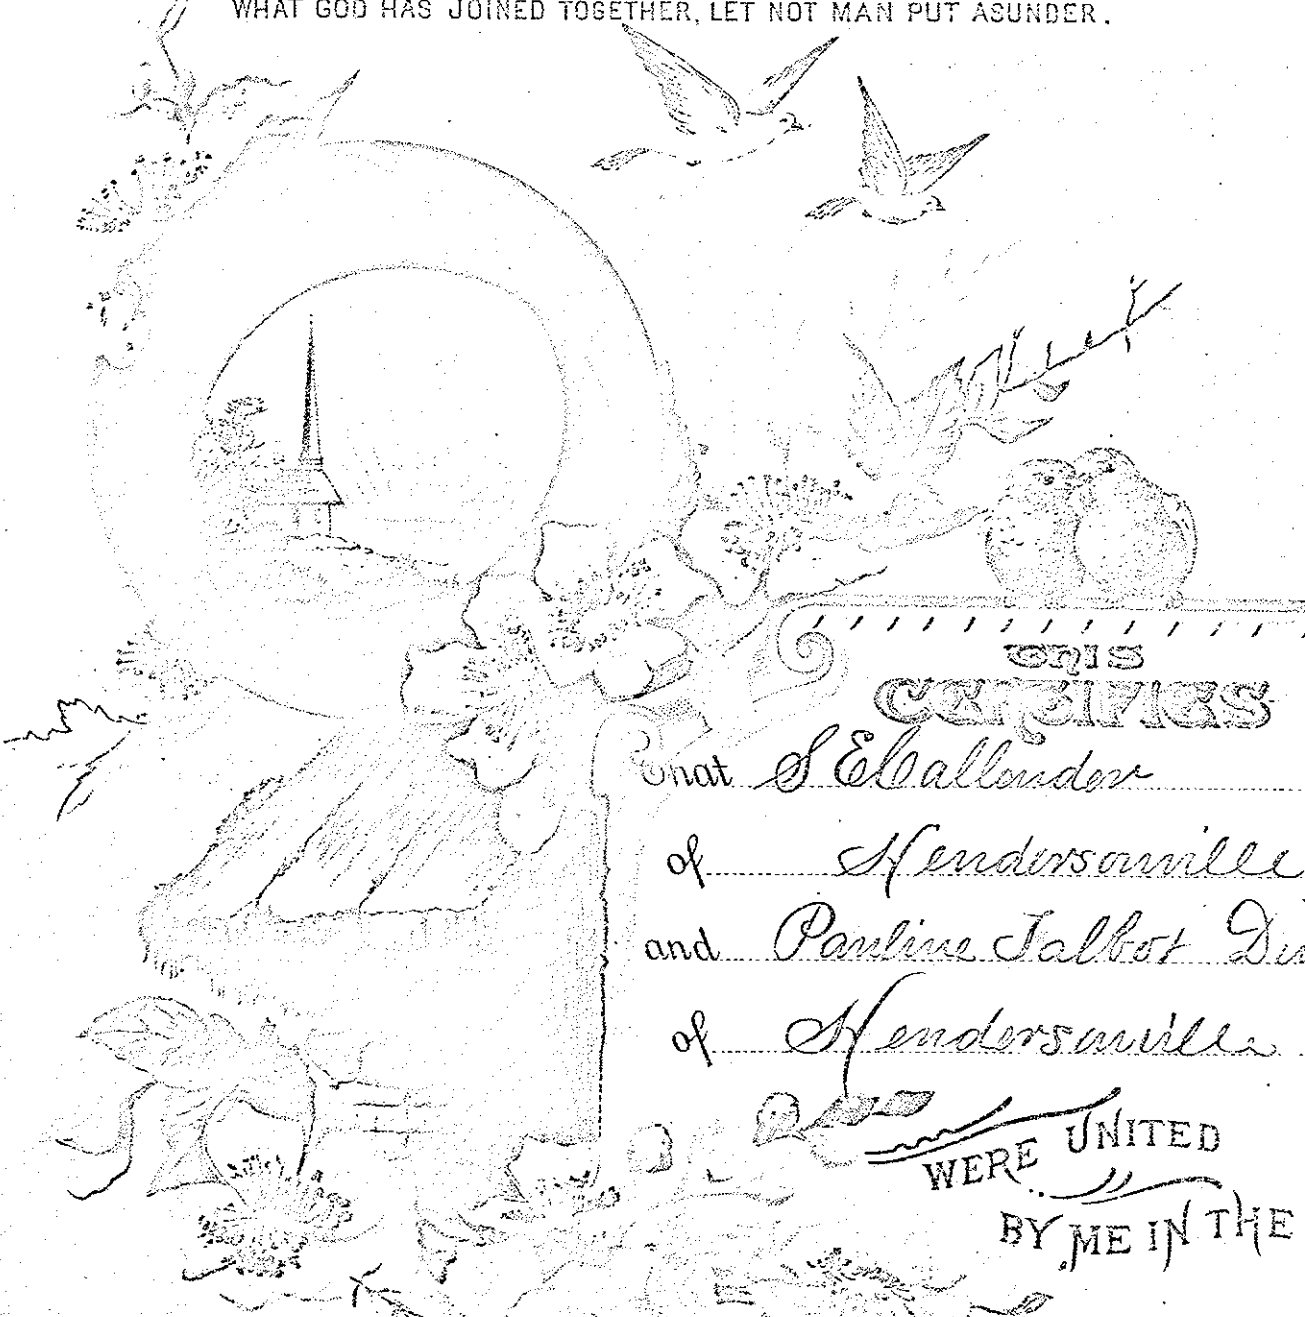 WHAT GOD HAS JOINED TOGETHER, LET NOT MAN PUT ASUNDER.
THIS
CERTIFIES
That S E Callender
of Hendersonville
and Pauline Talbot
of Hendersonville
WERE UNITED
BY ME IN THE